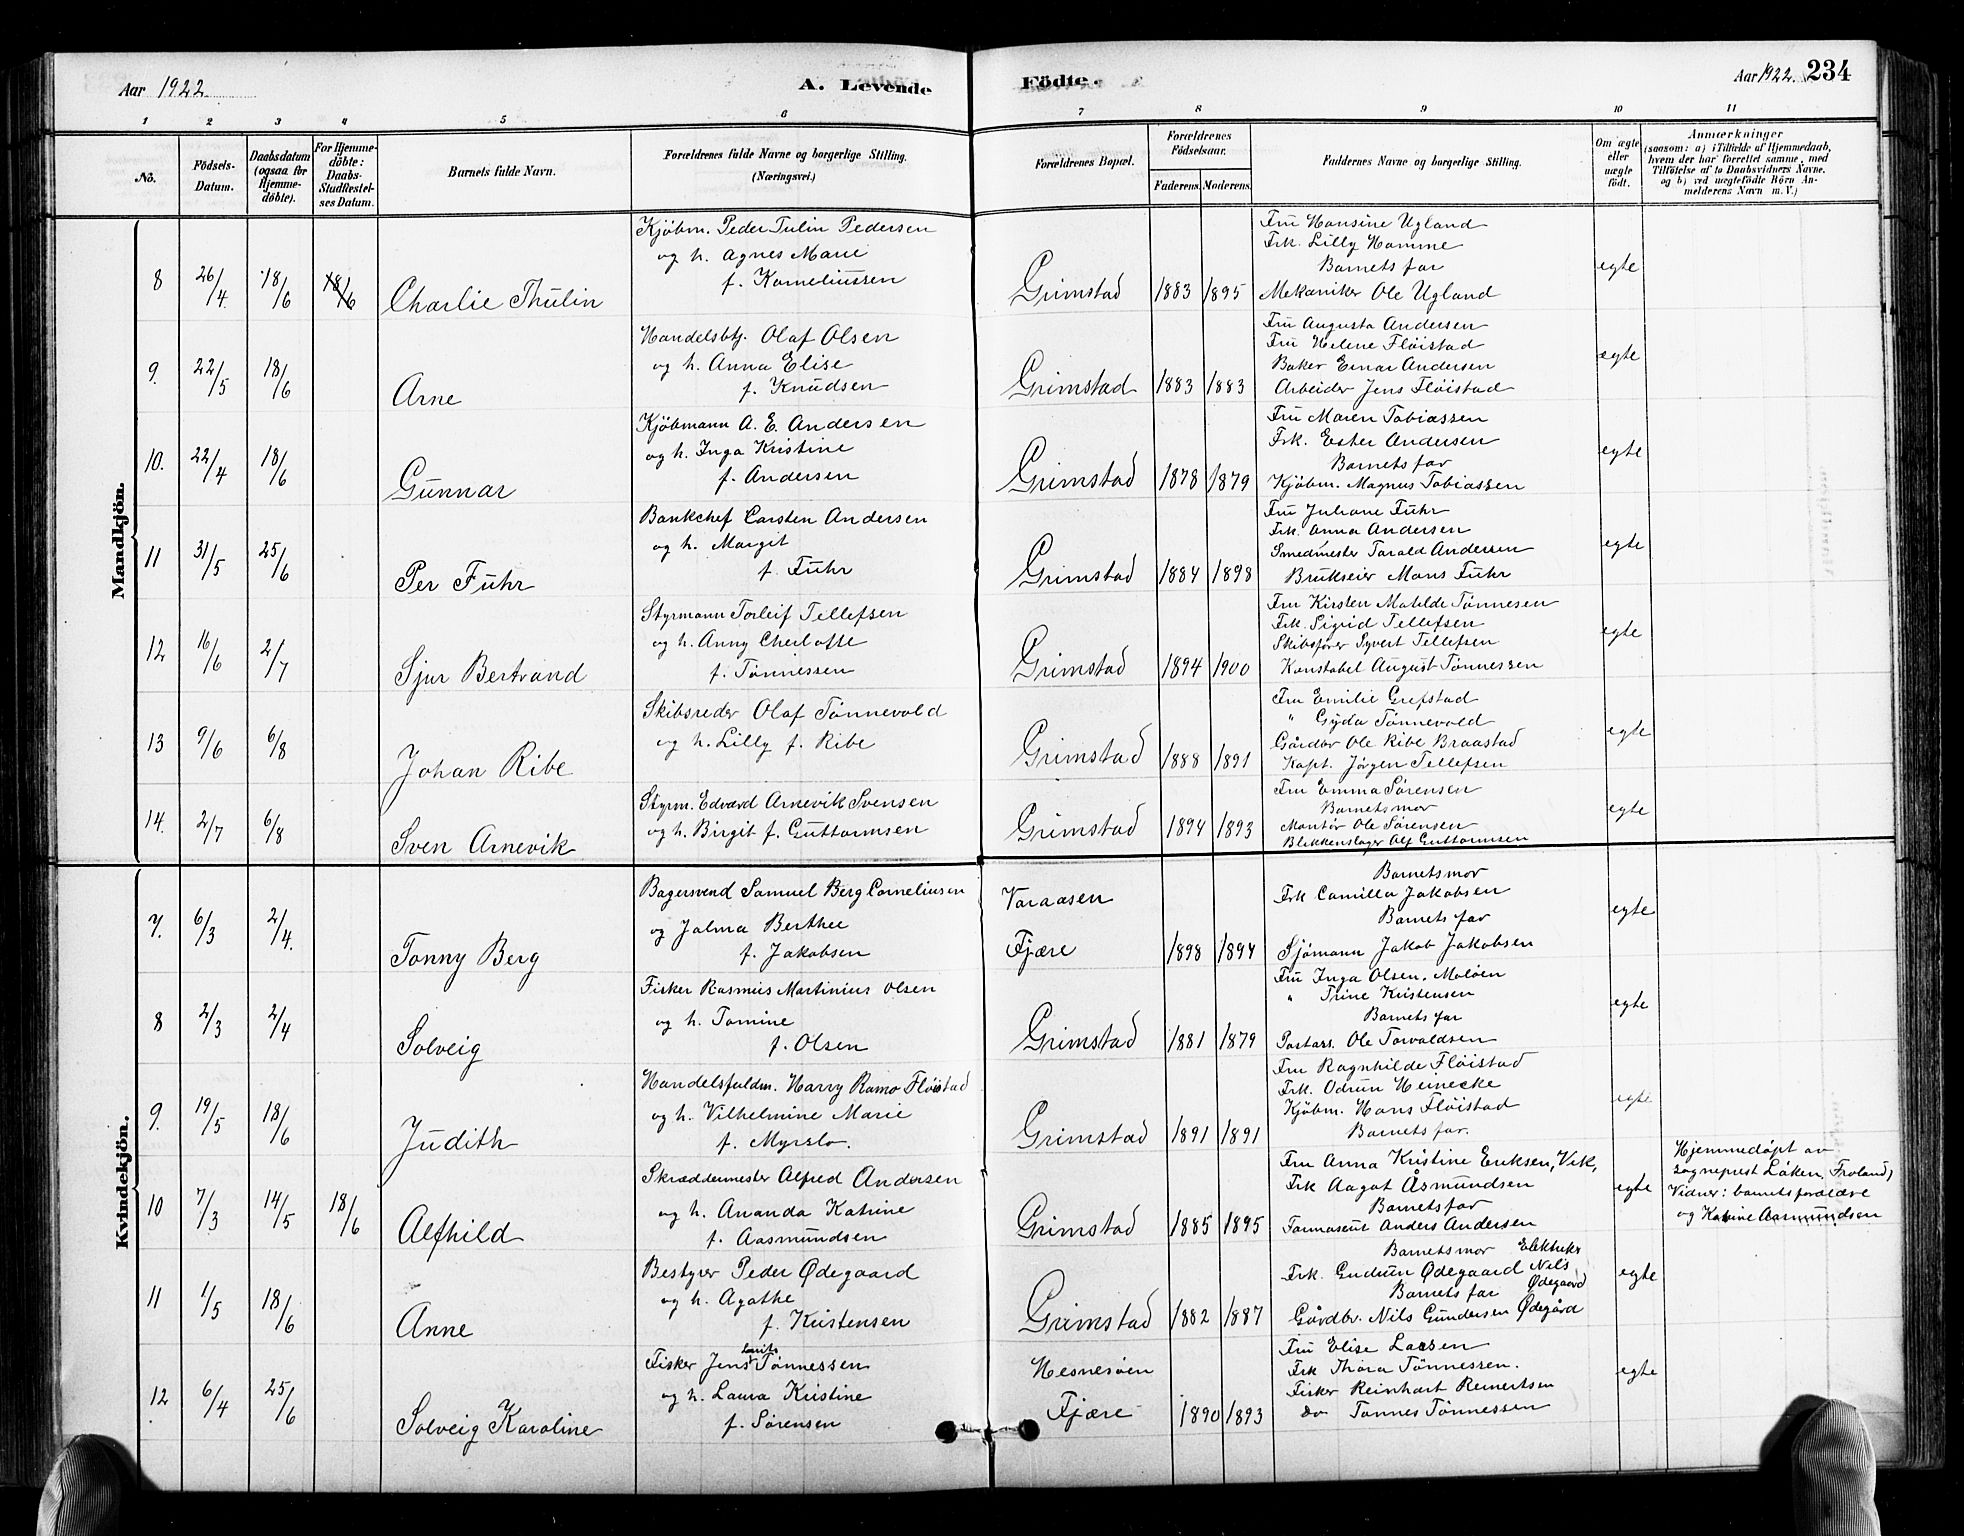 Aar 1922.
A. Levende
Födte.
Aar 1922. 234
1 2 3 4 5 6 7 8 9 10 11
No.
Födsels-Datum.
Daabsdatum (ogsaa for Hjemme-döbte).
For Hjemme-döbte: Daabs-Stadfæstel-ses Datum.
Barnets fulde Navn.
Forældrenes fulde Navne og borgerlige Stilling.
(Næringsvei.)
Forældrenes Bopæl.
Forældrenes Födselsaar.
Faderens. Moderens.
Faddernes Navne og borgerlige Stilling.
Om ægte eller uægte födt.
Anmærkninger
(saasom: a) i Tilfælde af Hjemmedaab, hvem der har forrettet samme, med Tilföielse af to Daabsvidners Navne, og b) ved uægtefödte Börn An-melderens Navn m. V.)
Mandkjön.
8 26/4 18/6 18/6 Charlie Thulin
Kjöbm. Peder Tulin Pedersen
og h. Agnes Marie
f. Korneliussen
Grimstad 1883 1895
Fru Hansine Ugland
Frk. Lilly Hamme
Barnets far
Mekaniker Ole Ugland
egte
9. 22/5 18/6 Arne
Handelsbtj. Olaf Olsen
og h. Anna Elise
f. Knudsen
Grimstad 1883 1883
Fru Augusta Andersen
Fru Helene Fløistad
Baker Einar Andersen
Arbeider Jens Fløistad
ægte
10. 22/4 18/6 Gunnar
Kjöbmann A. E. Andersen
og h. Inga Kristine
f. Andersen
Grimstad 1878 1879
Fru Maren Tobiassen
Frk. Ester Andersen
Barnets far
Kjøbm. Magnus Tobiassen
egte
11 31/5 25/6 Per Fuhr
Bankchef Carsten Andersen
og h. Margit
f. Fuhr
Grimstad 1884 1898
Fru Juliane Fuhr
Frk. Anna Andersen
Smedmester Tarald Andersen
Brukseier Mons Fuhr
egte
12 16/6 2/7 Sjur Bertrand
Styrmann Torleif Tellefsen
og h. Anny Charlotte
f. Tønnessen
Grimstad 1894 1900
Fru Kirsten Matilde Tønnesen
Frk. Sigrid Tellefsen
Skibsfører Syvert Tellefsen
Konstabel August Tønnessen
egte
13 9/6 6/8 Johan Ribe
Skibsreder Olaf Tønnevold
og h. Lilly f. Ribe
Grimstad 1888 1891
Fru Emilie Grefstad
" Gyda Tønnevold
Gårdbr Ole Ribe Braastad
Kapt. Jørgen Tellefsen
egte
14. 2/7 6/8 Sven Arnevik
Styrm. Edvard Arnevik Svensen
og h. Birgit f. Guttormsen
Grimstad 1894 1893
Fru Emma Sørensen
Barnets mor
Montør Ole Sørensen
Blikkenslager Alf Guttormsen
egte
Kvindekjön.
7. 6/3 2/4. Tonny Berg
Bagersvend Samuel Berg Corneliusen
og Jalma Berthee
f. Jakobsen
Varaasen
Fjære 1898 1894
Barnets mor
Frk Camilla Jakobsen
Barnets far
Sjømann Jakob Jakobsen
egte
8 2/3 2/4 Solveig
Fisker Rasmus Martinius Olsen
og h. Tomine
f. Olsen
Grimstad 1881 1879
Fru Inga Olsen, Maløen
" Trine Kristensen
Barnets far
Postass. Ole Torvaldsen
egte
9. 19/5 18/6 Judith
Handelsfuldm. Harry Ramo Fløistad
og h. Vilhelmine Marie
f. Myrslo.
Grimstad 1891 1891
Fru Ragnhilde Fløistad
Frk. Odrun Heinecke
Kjöbm. Hans Fløistad
Barnets far.
egte
10 7/3 14/5 18/6 Alfhild
Skræddermester Alfred Andersen
og h. Ananda Katrine
f. Aasmundsen
Grimstad 1885 1895
Fru Anna Kristine Eriksen, Vik,
Frk Aagot Åsmundsen
Barnets far
Garmaseur Anders Andersen
egte
Hjemmedøpt av
sogneprest Løken, Froland,
Vidner: barnets forældre
og Katrine Aasmundsen
11 1/5 18/6 Anne
Bestyrer Peder Ødegaard
og h. Agathe
f. Kristensen
Grimstad 1882 1887
Barnets mor Elektriker
Frk. Gudrun Ødegaard Nils
Barnets far Ødegaard
Gårdbr. Nils Gundersen Ødegård
egte
12 6/4 25/6 Solveig Karoline
Fisker Jens Tønnessen
og h. Laura Kristine
f. Sørensen
Hesnesøen
Fjære 1890 1893
Fru Elise Larsen
Frk Thora Tønnessen.
Fisker Reinhart Reinertsen
do Tønnes Tønnessen
egte